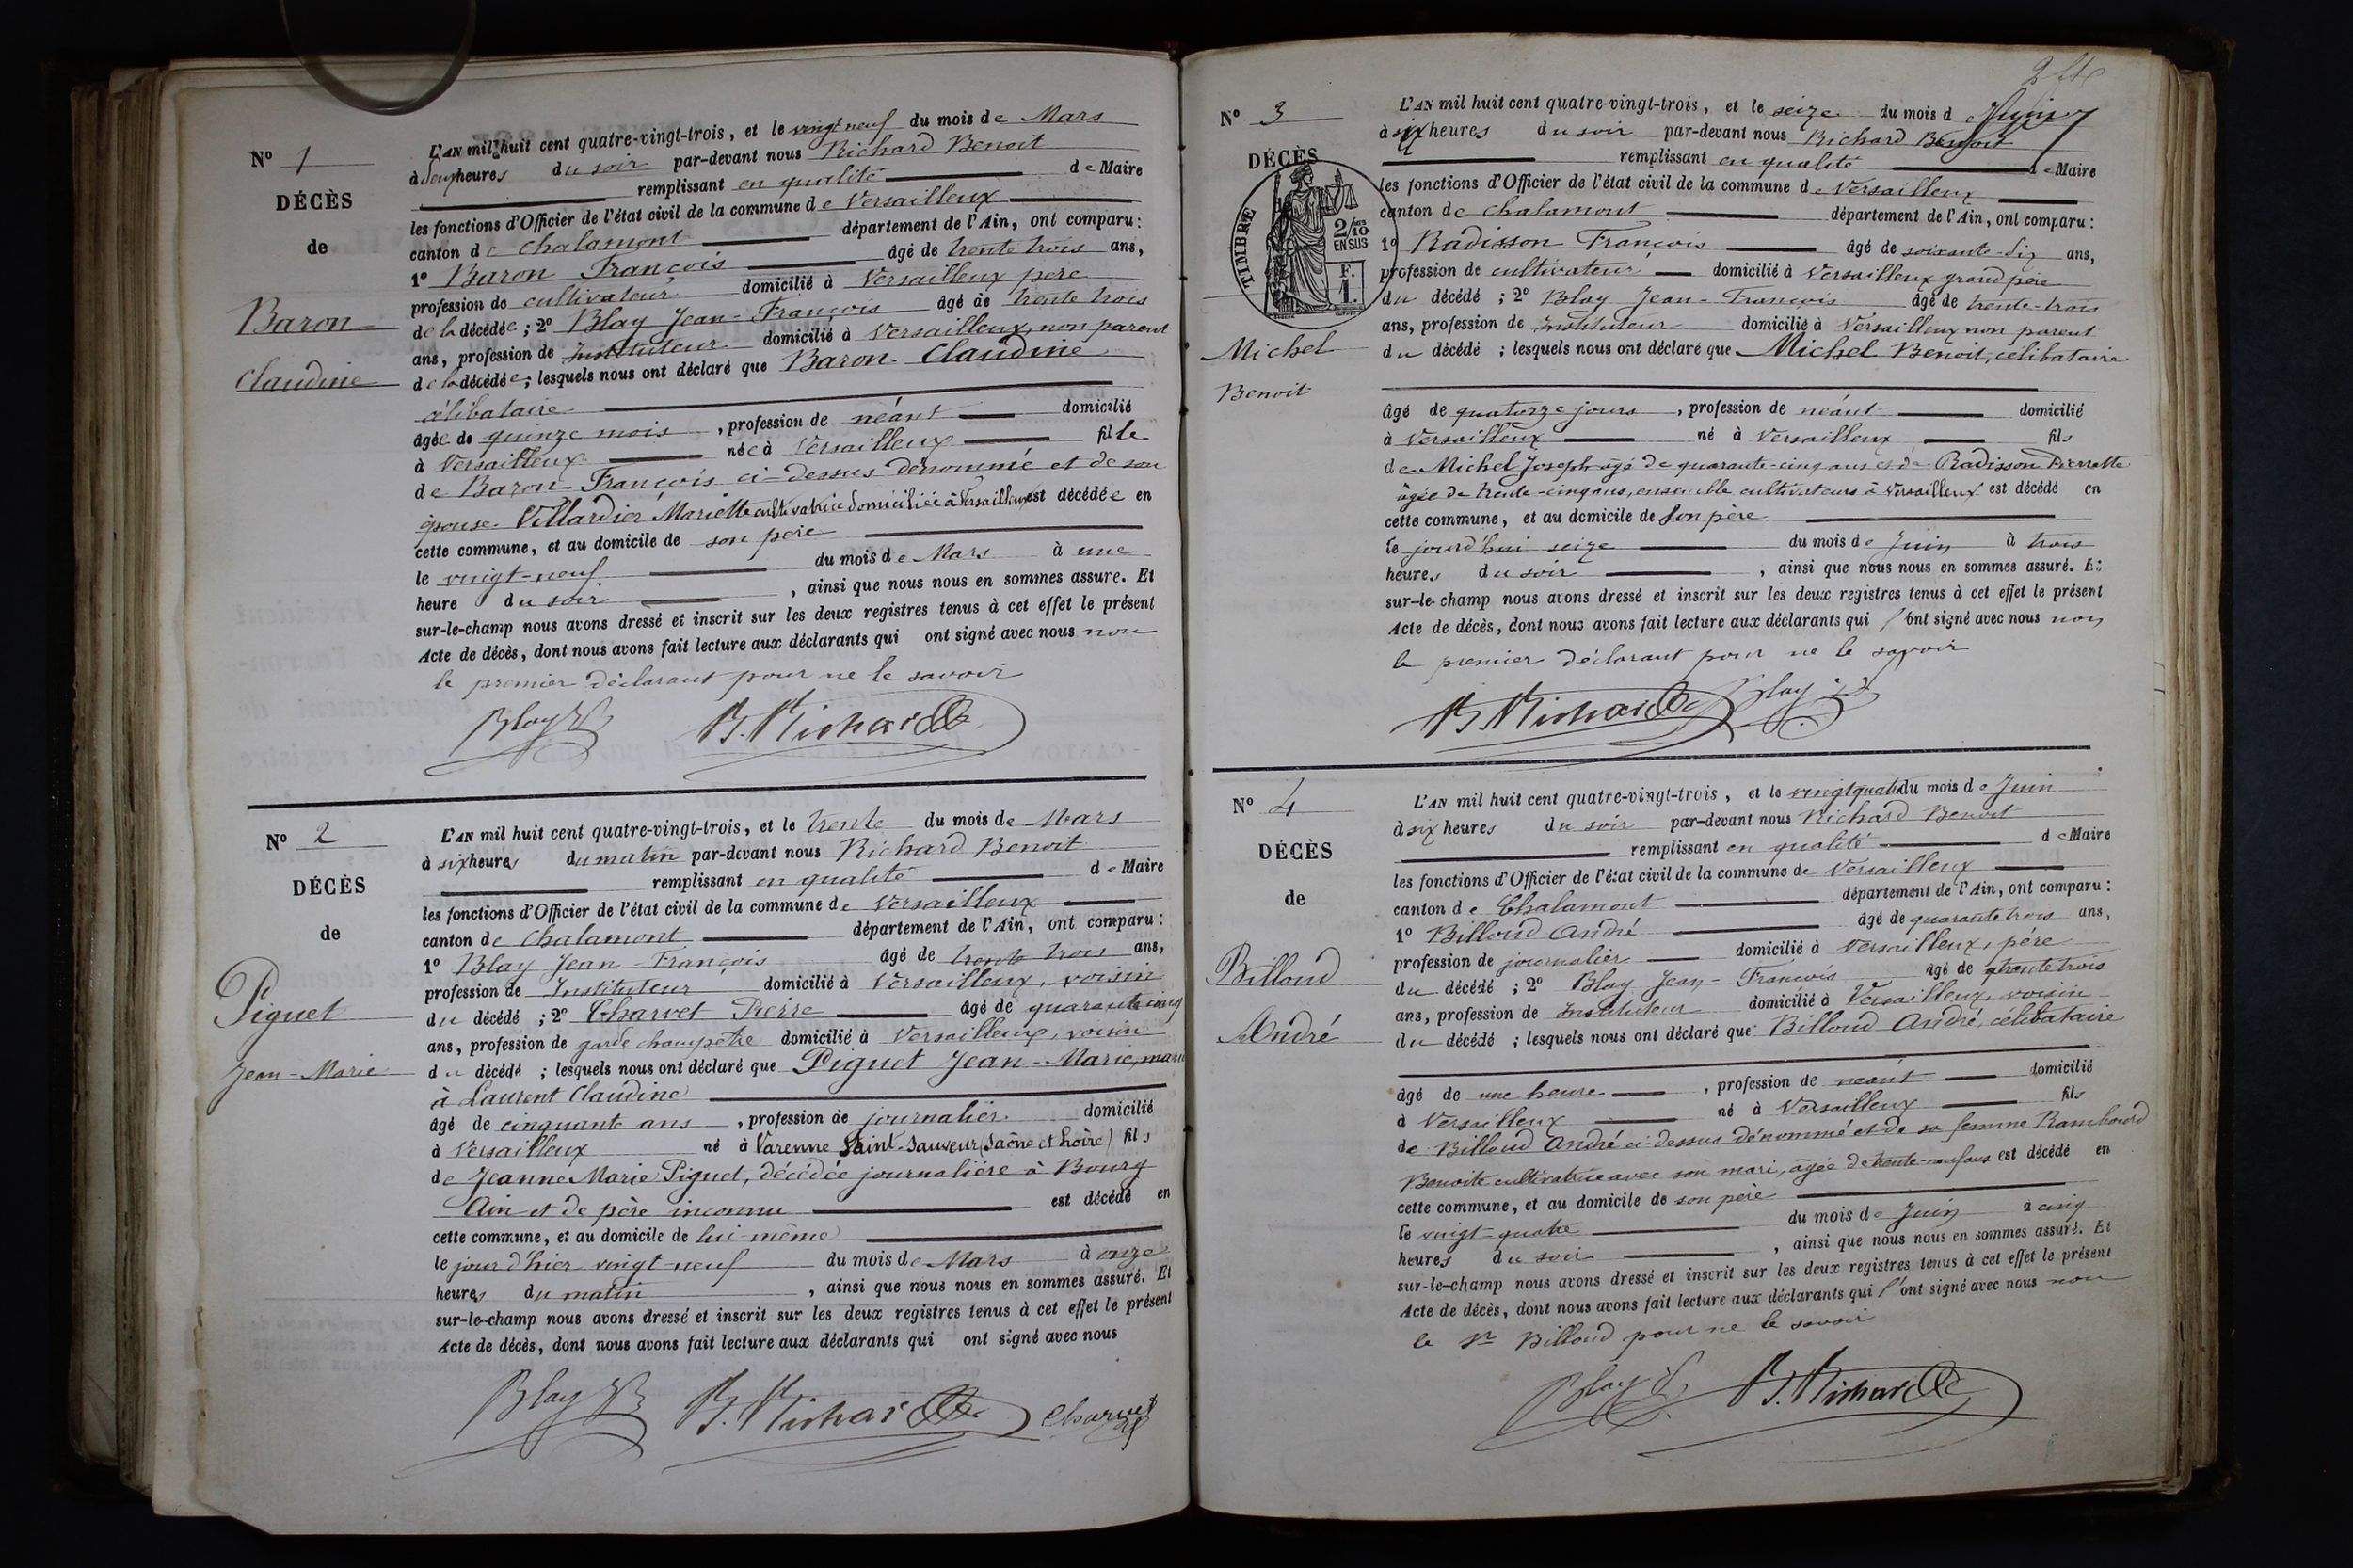 N° 1
DÉCÈS
de
Baron
Claudine
L'AN mil huit cent quatre-vingt-trois, et le vingt neuf du mois de Mars
à deux heures du soir par-devant nous Richard Benoit
remplissant en qualité de Maire
les fonctions d'Officier de l'état civil de la commune de Versailleux
canton de Chalamont département de l'Ain, ont comparu :
1° Baron François âgé de trente trois ans,
profession de cultivateur domicilié à Versailleux père
de la décédée ; 2° Blay Jean-François âgé de trente trois
ans, profession de Instituteur domicilié à Versailleux, non parent
de la décédée ; lesquels nous ont déclaré que Baron Claudine
célibataire
âgée de quinze mois, profession de néant domicilié
à Versailleux née à Versailleux fille
de Baron François ci-dessus dénommé et de son
épouse Villardier Mariette cultivatrice domiciliée à Versailleux est décédée en
cette commune, et au domicile de son père
le vingt-neuf du mois de Mars à une
heure du soir, ainsi que nous nous en sommes assuré. Et
sur-le-champ nous avons dressé et inscrit sur les deux registres tenus à cet effet le présent
Acte de décès, dont nous avons fait lecture aux déclarants qui ont signé avec nous non
le premier déclarant pour ne le savoir
Blay B. Richard
N° 2
DÉCÈS
de
Piguet
Jean-Marie
L'AN mil huit cent quatre-vingt-trois, et le trente du mois de Mars
à six heures du matin par-devant nous Richard Benoit
remplissant en qualité de Maire
les fonctions d'Officier de l'état civil de la commune de Versailleux
canton de Chalamont département de l'Ain, ont comparu :
1° Blay Jean-François âgé de trente trois ans,
profession de Instituteur domicilié à Versailleux, voisin
du décédé ; 2° Charvet Pierre âgé de quarante cinq
ans, profession de garde champêtre domicilié à Versailleux, voisin
du décédé ; lesquels nous ont déclaré que Piguet Jean-Marie, marié
à Laurent Claudine
âgé de cinquante ans, profession de journalier domicilié
à Versailleux né à Varenne Saint-Sauveur (Saône et Loire) fils
de Jeanne Marie Piguet, décédée journalière à Bourg
Ain et de père inconnu est décédé en
cette commune, et au domicile de lui-même
le jour d'hier vingt-neuf du mois de Mars à onze
heures du matin, ainsi que nous nous en sommes assuré. Et
sur-le-champ nous avons dressé et inscrit sur les deux registres tenus à cet effet le présent
Acte de décès, dont nous avons fait lecture aux déclarants qui ont signé avec nous
Blay B. Richard Charvet
N° 3
DÉCÈS
TIMBRE
2/10 EN SUS
F. 1.
Michel
Benoit
L'AN mil huit cent quatre-vingt-trois, et le seize du mois de Juin
à six heures du soir par-devant nous Richard Benoit
remplissant en qualité de Maire
les fonctions d'Officier de l'état civil de la commune de Versailleux
canton de Chalamont département de l'Ain, ont comparu :
1° Radisson François âgé de soixante-dix ans,
profession de cultivateur domicilié à Versailleux grand père
du décédé ; 2° Blay Jean-François âgé de trente-trois
ans, profession de Instituteur domicilié à Versailleux non parent
du décédé ; lesquels nous ont déclaré que Michel Benoit, célibataire
âgé de quatorze jours, profession de néant domicilié
à Versailleux né à Versailleux fils
de Michel Joseph âgé de quarante-cinq ans et de Radisson Pierrette
âgée de trente-cinq ans, ensemble cultivateurs à Versailleux est décédé en
cette commune, et au domicile de son père
le jourd'hui seize du mois de Juin à trois
heures du soir, ainsi que nous nous en sommes assuré. Et
sur-le-champ nous avons dressé et inscrit sur les deux registres tenus à cet effet le présent
Acte de décès, dont nous avons fait lecture aux déclarants qui ont signé avec nous non
le premier déclarant pour ne le savoir
B. Richard Blay
N° 4
DÉCÈS
de
Billoud
André
L'AN mil huit cent quatre-vingt-trois, et le vingt quatre du mois de Juin
à six heures du soir par-devant nous Richard Benoit
remplissant en qualité de Maire
les fonctions d'Officier de l'état civil de la commune de Versailleux
canton de Chalamont département de l'Ain, ont comparu :
1° Billoud André âgé de quarante trois ans,
profession de journalier domicilié à Versailleux, père
du décédé ; 2° Blay Jean-François âgé de trente trois
ans, profession de Instituteur domicilié à Versailleux, voisin
du décédé ; lesquels nous ont déclaré que Billoud André, célibataire
âgé de une heure, profession de néant domicilié
à Versailleux né à Versailleux fils
de Billoud André ci-dessus dénommé et de sa femme
Benoite cultivatrice avec son mari, âgée de trente-neuf ans est décédé en
cette commune, et au domicile de son père
le vingt quatre du mois de Juin à cinq
heures du soir, ainsi que nous nous en sommes assuré. Et
sur-le-champ nous avons dressé et inscrit sur les deux registres tenus à cet effet le présent
Acte de décès, dont nous avons fait lecture aux déclarants qui ont signé avec nous non
le Sr Billoud pour ne le savoir
Blay B. Richard